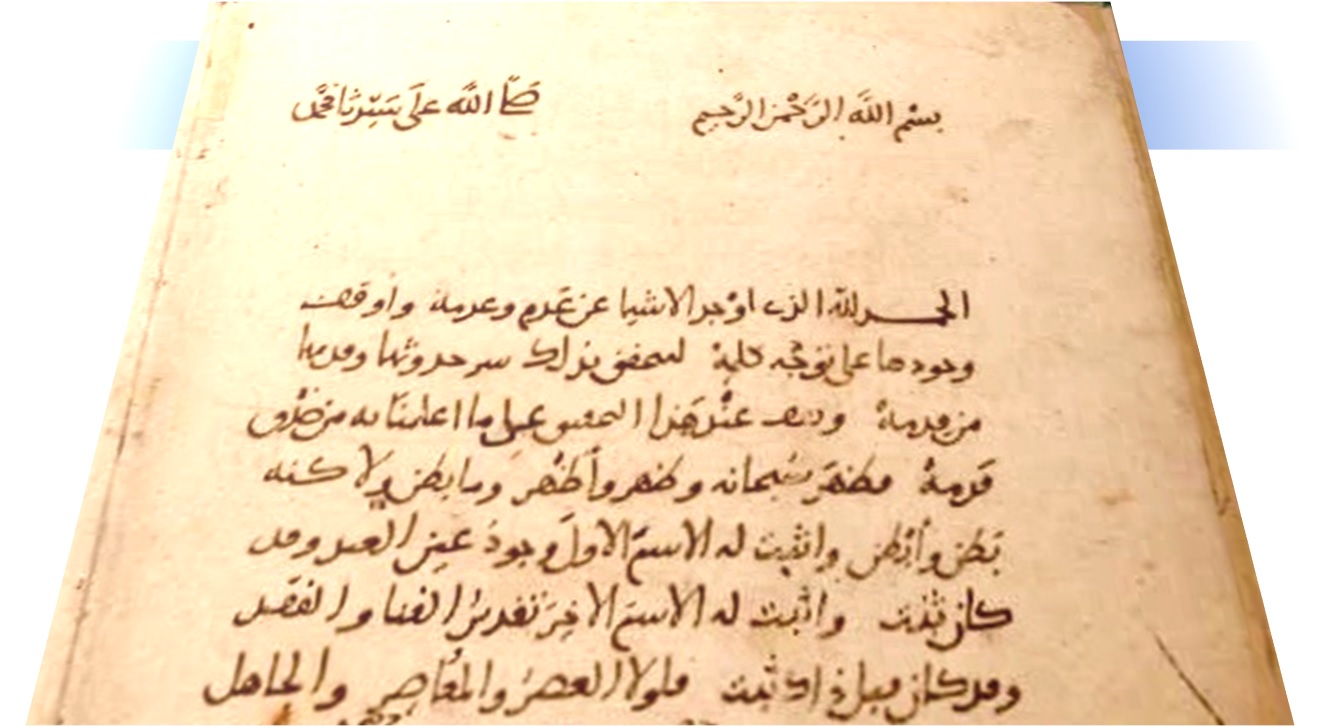 بسم الله الرحمن الرحيم صلى الله على سيدنا محمد
الحمد لله الذي اوجد الاشيا عن عدم وعدمه واوقف
وجودها على توجه كلمه لنحقق بذلك سر حدوثها وقدمها
من قدمه ونقف عند هذا التحقيق على ما اعلمنا به من صدق
قدمه فظهر سبحانه وظهر وأظهر وما بطن ولاكنه
بطن وأبطن واثبت له الاسم الاول وجود عين العبد وقد
كان ثبت واثبت له الاسم الاخر تقدير الفنا والفقد
وقد كان قبل ذلك ثبت فلولا العصر والمعاصر والجاهل